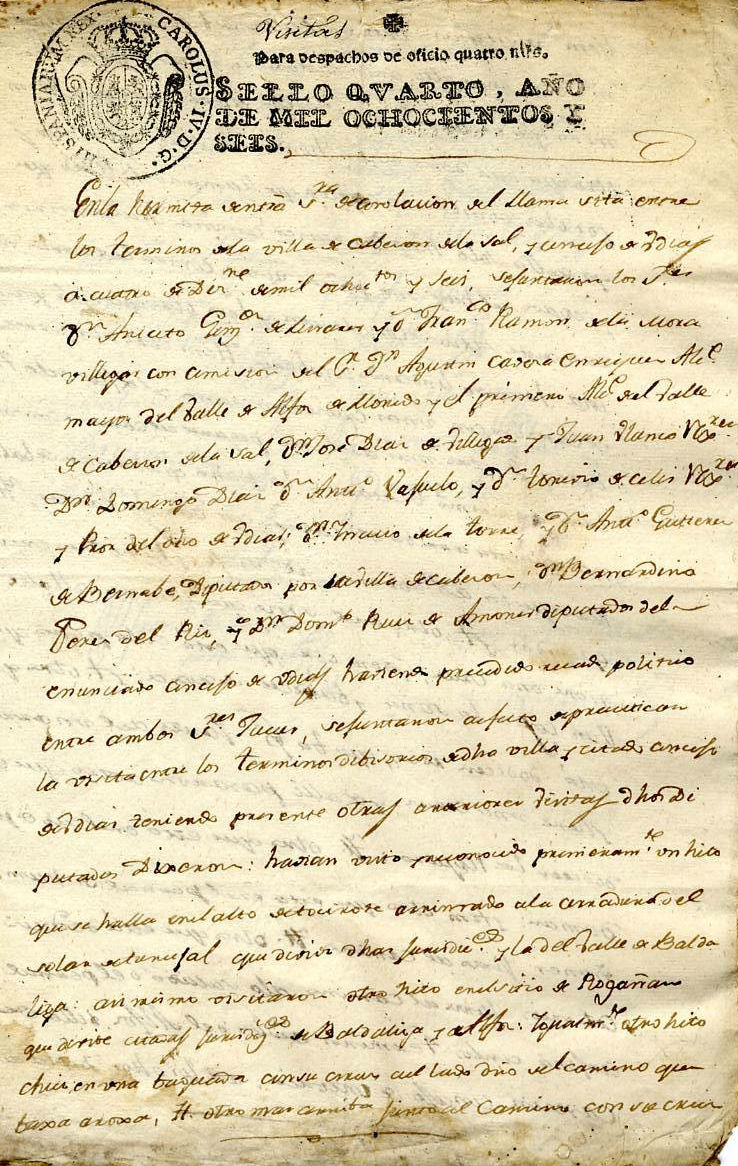 Visitas
CAROLUS·IV·D·G· HISPANIAR·IN·REX·
Para despachos de oficio quatro mrs.
SELLO QVARTO, AÑO
DE MIL OCHOCIENTOS Y
SEIS.
En la Hermita de nrā Sra de del Llama sita entre
los terminos de la villa de Cabezon de la Sal, y concejo de Vdias
a cuatro de de mil ochotos y seis, se juntaron los Sres
Dn Aniceto de y Dn Franco Ramon de la Mora
villegas con comision del Sr Dn Agustin Enrriquez Alc
mayor del Valle de Alfoz de Lloredo y el primero Alc del Valle
de Cabezon de la Sal, Dn Jose Diaz de Villegas y Juan
Dn Domingo Diaz Dn Anto Vafuelo, y Dn de Celis
y Pror del dho de Vdias; Dn de la Torre, y Dn Anto Gutierrez
de Bernabe, Diputados por la Villa de Cabezon, Dn Bernardino
Perez del Rio, y Dn Domo Ruiz de diputados del
enunciado concejo de Vdias haviendo precedido recado politico
entre ambos Sres Jueces, se juntaron a efecto de practicar
la visita entre los terminos dibisorios de dha villa y citado concejo
de Vdias teniendo presente otras anteriores visitas dhos Di
putados Dixeron: havian visto y reconocido primeramte vn hito
que se halla en el alto de arrimado a la cerradura del
solar de que divide dhas y la del Valle de Balda
liga: asi mismo visitaron otro hito en el sitio de
que divide citadas de Baldaliga y Alfoz: Igualmte otro hito
en vna con su cruz al lado dro del camino que
baxa a roxa, It. otro mas arriba junto al Camino con su cruz